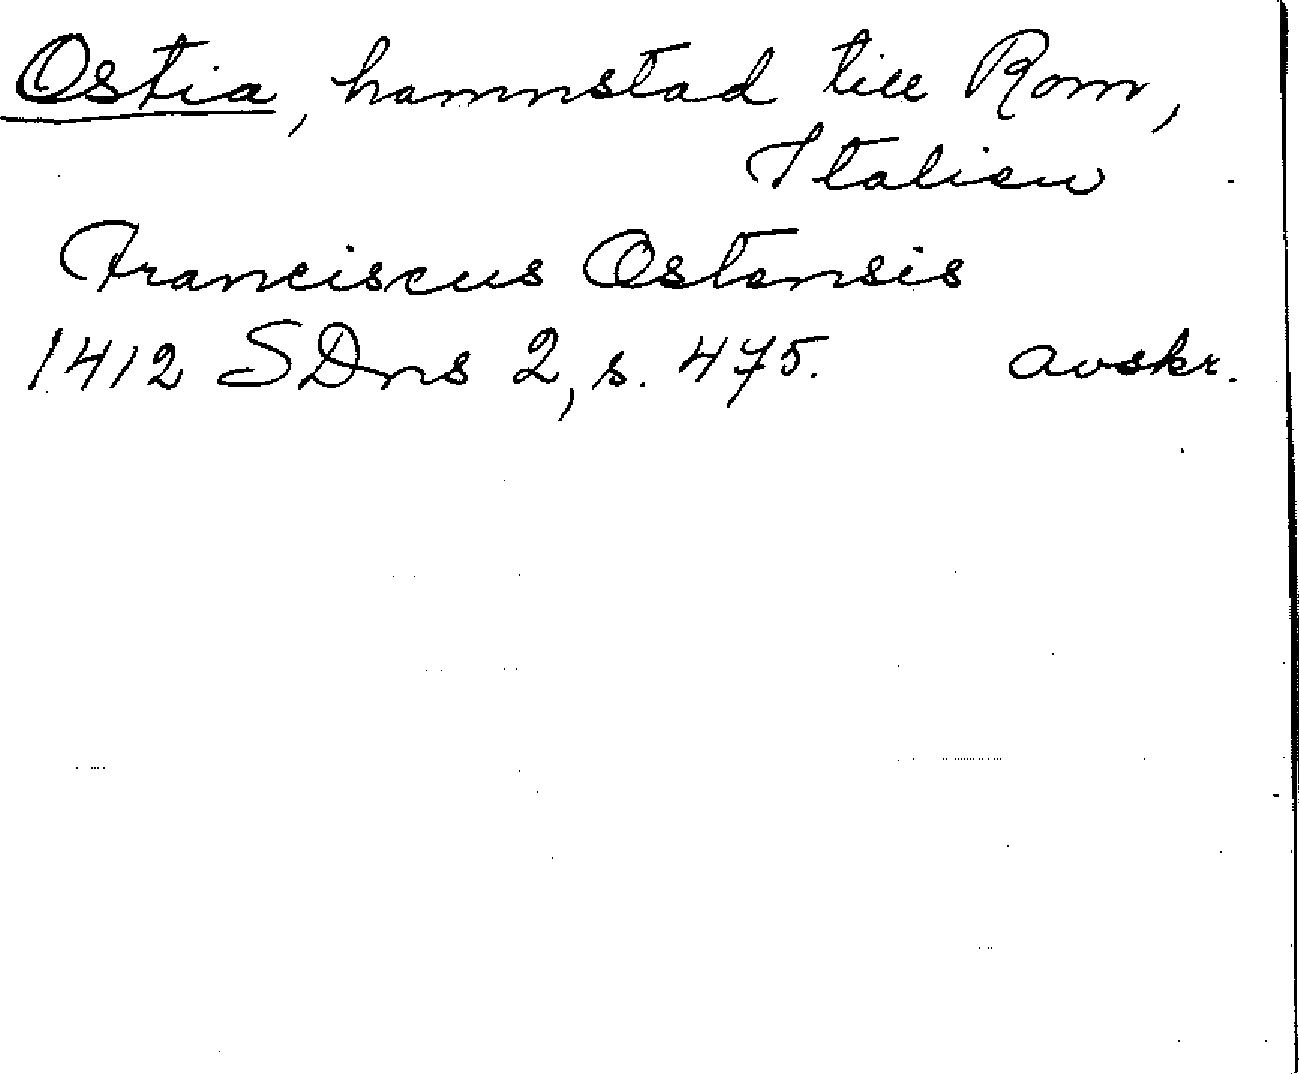 Ostia, hamnstad till Rom,
Italien
Franciscus Ostensis
1412 SDns 2, s. 475. avskr.